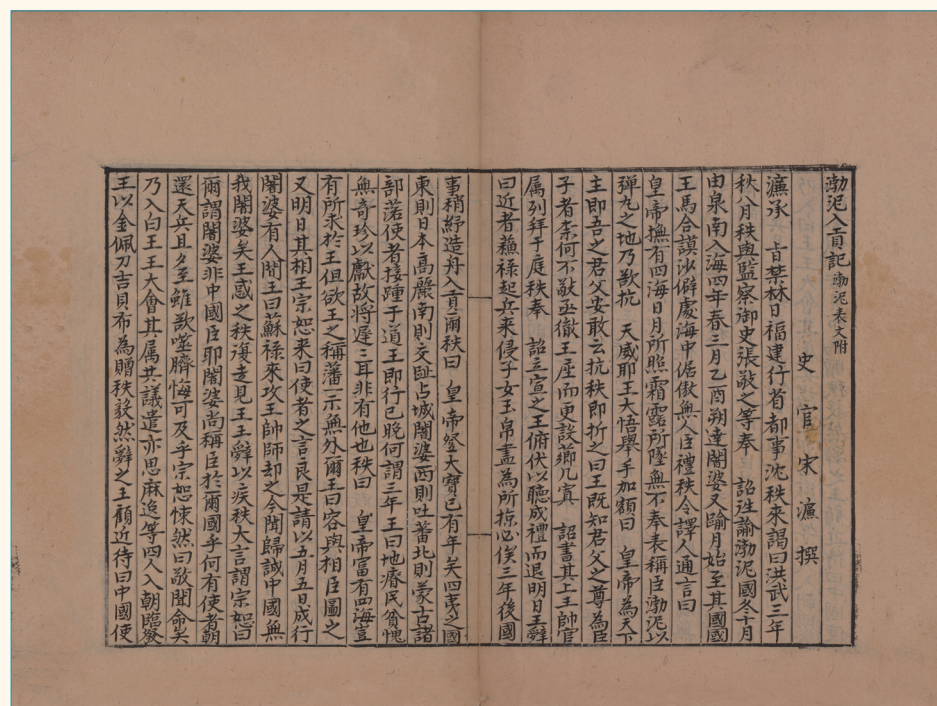 渤泥入貢記渤泥表文附
史官宋濂撰
濂承　旨禁林日福建行省都事沈秩來謁曰洪武三年
秋八月秩與監察御史張敬之等奉　詔往諭渤泥國冬十月
由泉南入海四年春三月乙酉朔達闍婆又踰月始至其國國
王馬合謨沙僻處海中倨傲無人臣禮秩令譯人通言曰
皇帝撫有四海日月所照霜露所墜無不奉表稱臣渤泥以
彈丸之地乃欲抗　天威耶王大悟舉手加額曰　皇帝為天下
主即吾之君父安敢云抗秩即折之曰王既知君父之尊為臣
子者柰何不敬亟徹王座而更設薌几寘　詔書其上王帥官
属列拜于庭秩奉　詔立宣之王俯伏以聽成禮而退明日王辭
曰近者蘓禄起兵来侵子女玉帛盡為所掠必俟三年後國
事稍紓造舟入貢爾秩曰　皇帝登大寶已有年矣四夷之國
東則日本高麗南則交趾占城闍婆西則吐蕃北則蒙古諸
部落使者接踵于道王即行已晚何謂三年王曰地瘠民貧愧
無奇珍以獻故將遲遲耳非有他也秩曰　皇帝富有四海豈
有所求於王但欲王之稱藩一示無外爾王曰容與相臣圖之
又明日其相王宗恕来曰使者之言良是請以五月五日成行
闍婆有人間王曰蘇禄來攻王帥師却之今聞歸誠中國無
我闍婆矣王惑之秩復走見王王辭以疾秩大言謂宗恕曰
爾謂闍婆非中國臣耶闍婆尚稱臣於爾國乎何有使者朝
還天兵旦夕至雖欲噬臍悔可及乎宗恕悚然曰敬聞命矣
乃入白王王大會其属共議遣亦思麻逸等四人入朝臨發
王以金佩刀吉貝布為贈秩毅然辭之王顧近侍曰中國使